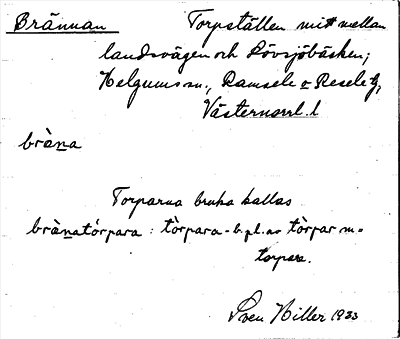 Brännan Torpställen mitt mellan
landsvägen och Lövsjöbäcken;
Helgums sn., Ramsele o Resele tg,
Västernorrl. l
bràna
Torparna bruka kallas
brànatórpara : tòrpara - b. pl. av tòrpar m =
torpare.
Sven Hiller 1933